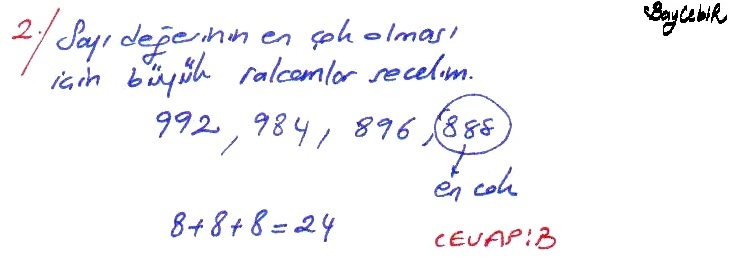 BayCebiR
2./ Sayı değerinin en çok olması
için büyük rakamlar seçelim.
992, 984, 896, 888
en çok
8+8+8=24
CEVAP:B